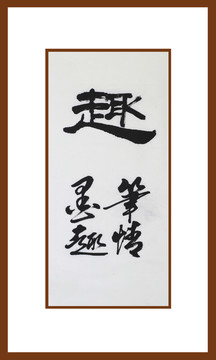 趣
筆情
墨趣